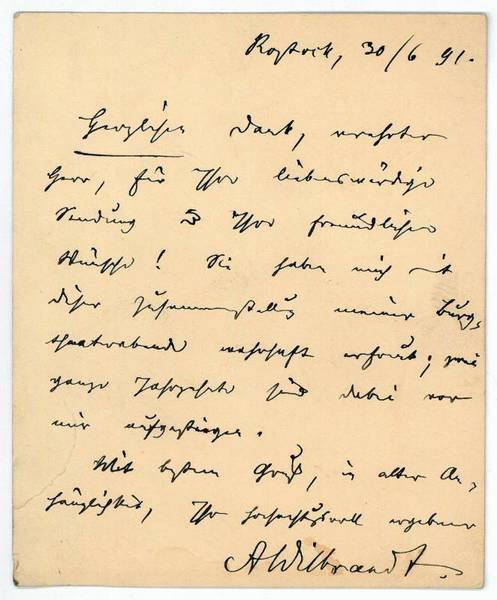 Rostock, 30/6 91.
Herzlichen Dank, verehrter
Herr, für Ihre liebenswürdige
Sendung u. Ihre freundlichen
Wünsche! Sie haben mich mit
dieser Zusammenstellung meiner Burg-
theaterabende wahrhaft erfreut;
ganze Jahrzehnte sind dabei vor
mir aufgestiegen.
Mit bestem Gruß, in alter An-
hänglichkeit, Ihr hochachtungsvoll ergebener
AWilbrandt.